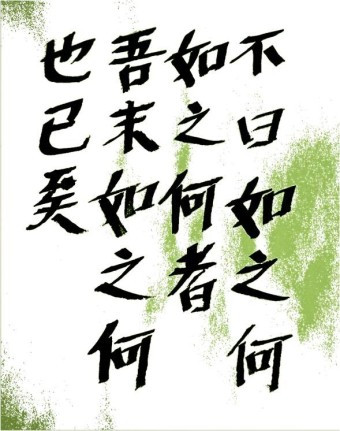 不曰如之何
如之何者
吾末如之何
也已矣